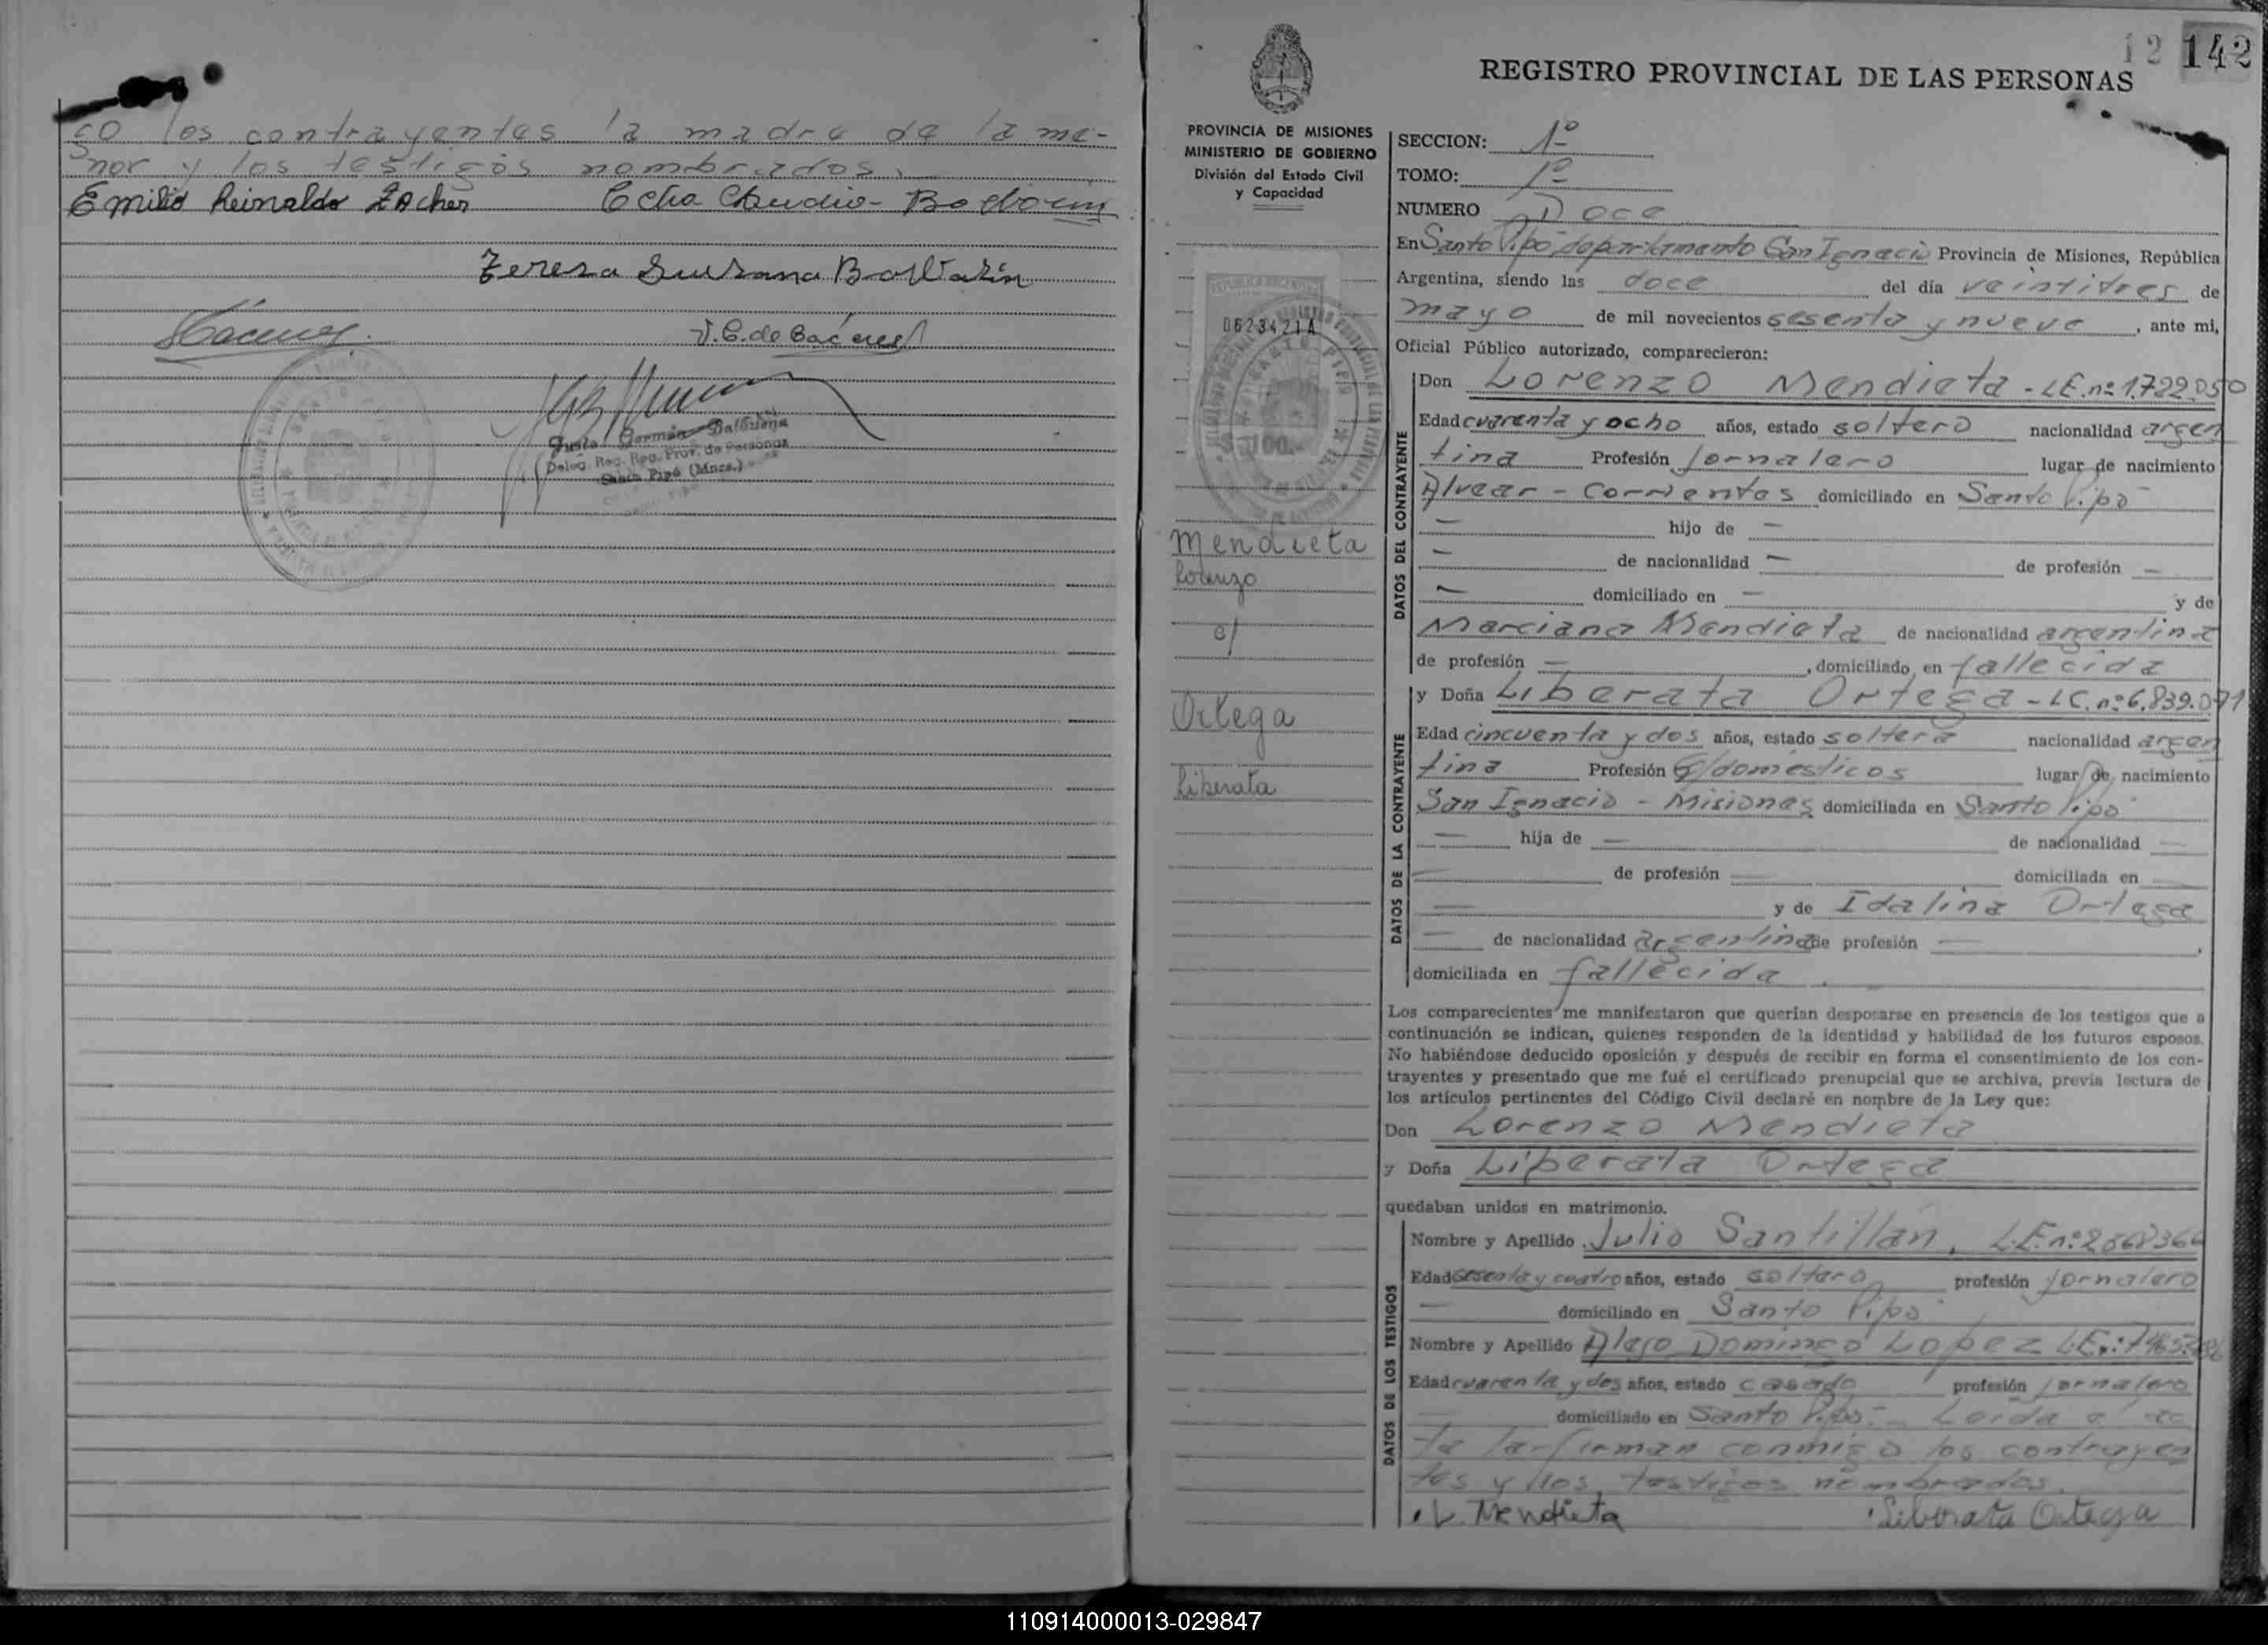 go los contrayentes la madre de la me-
nor y los testigos nombrados.
Emilio Reinaldo Zacher
Teresa Susana
J. C. de Caceres
Justo Germán Balbuena
Deleg. Reg. Prov. de Personas
Santo Pipó (Mnes.)
12 142
REGISTRO PROVINCIAL DE LAS PERSONAS
PROVINCIA DE MISIONES
MINISTERIO DE GOBIERNO
División del Estado Civil
y Capacidad
0623421A
Mendieta
Lorenzo
c/
Ortega
Liberata
SECCION: 1º
TOMO: 1º
NUMERO Doce
En Santo Pipó departamento San Ignacio Provincia de Misiones, República
Argentina, siendo las doce del día veintitres de
mayo de mil novecientos sesenta y nueve, ante mi,
Oficial Público autorizado, comparecieron:
DATOS DEL CONTRAYENTE
Don Lorenzo Mendieta - LE. nº 1.722.050
Edad cuarenta y ocho años, estado soltero nacionalidad argen
tina Profesión Jornalero lugar de nacimiento
Alvear - Corrientes domiciliado en Santo Pipó
— hijo de —
— de nacionalidad — de profesión —
— domiciliado en — y de
Marciana Mendieta de nacionalidad argentina
de profesión —, domiciliado en fallecida
DATOS DE LA CONTRAYENTE
y Doña Liberata Ortega - LC. nº 6.839.071
Edad cincuenta y dos años, estado soltera nacionalidad argen
tina Profesión Q/domesticos lugar de nacimiento
San Ignacio - Misiones domiciliada en Santo Pipó
— hija de — de nacionalidad —
— de profesión — domiciliada en —
— y de Idalina Ortega
— de nacionalidad argentina de profesión —,
domiciliada en fallecida.
Los comparecientes me manifestaron que querían desposarse en presencia de los testigos que a
continuación se indican, quienes responden de la identidad y habilidad de los futuros esposos.
No habiéndose deducido oposición y después de recibir en forma el consentimiento de los con-
trayentes y presentado que me fué el certificado prenupcial que se archiva, previa lectura de
los artículos pertinentes del Código Civil declaré en nombre de la Ley que:
Don Lorenzo Mendieta
y Doña Liberata Ortega
quedaban unidos en matrimonio.
DATOS DE LOS TESTIGOS
Nombre y Apellido Julio Santillán, L.E. nº 2668366
Edad sesenta y cuatro años, estado soltero profesión jornalero
— domiciliado en Santo Pipó
Nombre y Apellido Alejo Domingo Lopez L.E.
Edad cuarenta y dos años, estado casado profesión jornalero
— domiciliado en Santo Pipó.- Leida el ac
ta la firman conmigo los contrayen
tes y los testigos nombrados.
L. Mendieta Liberata Ortega
110914000013-029847